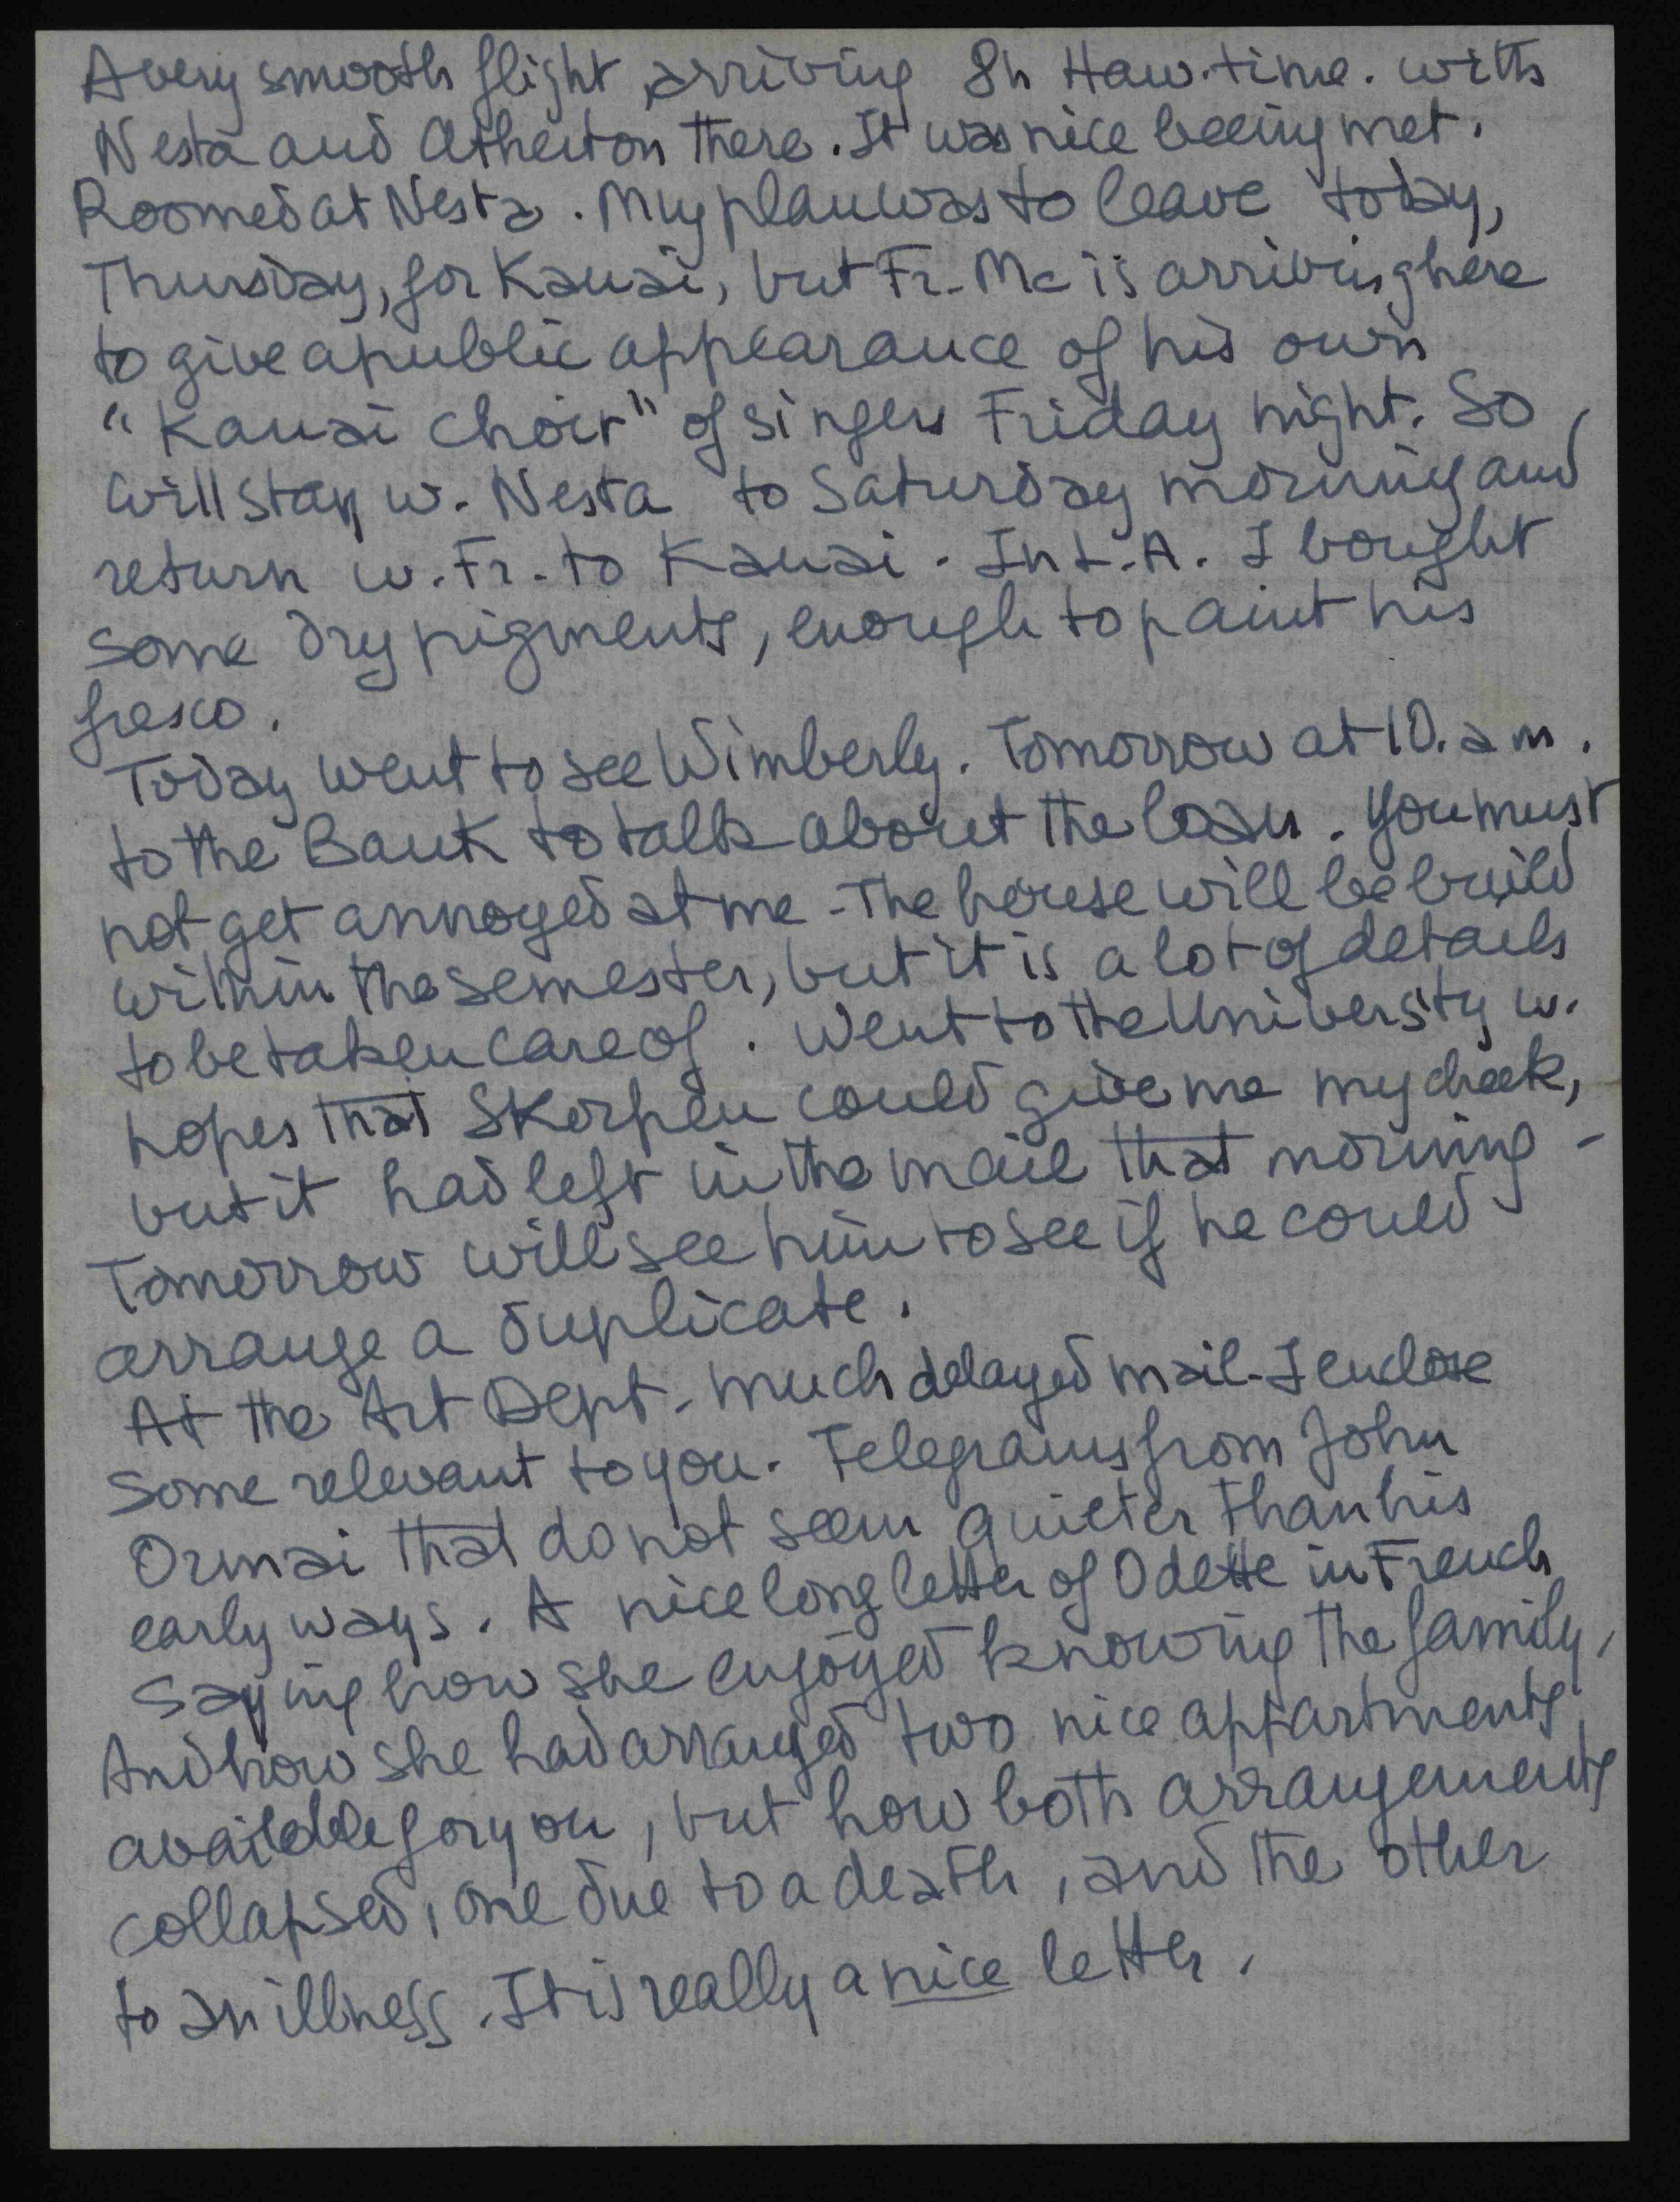 A very smooth flight, arriving 8h Haw. time. with
Nesta and Atherton there. It was nice beeing met.
Roomed at Nesta. My plan was to leave today,
Thursday, for Kauai, but Fr. Mc is arriving here
to give a public appearance of his own
"Kauai Choir" of singers Friday night. So
will stay w. Nesta to Saturday morning and
return w. Fr. to Kauai. In L.A. I bought
some dry pigments, enough to paint his
fresco.
Today went to see Wimberly. Tomorrow at 10. a m.
to the Bank to talk about the loan. You must
not get annoyed at me - The house will be build
within the semester, but it is a lot of details
to be taken care of. Went to the University w.
hopes that Skorpen could give me my check,
but it had left in the mail that morning -
Tomorrow will see him to see if he could
arrange a duplicate.
At the Art Dept. much delayed mail - I enclose
some relevant to you. Telegrams from John
Ormai that do not seem quieter than his
early ways. A nice long letter of Odette in French
saying how she enjoyed knowing the family,
And how she had arranged two nice appartments
available for you, but how both arrangements
collapsed, one due to a death, and the other
to an illness. It is really a nice letter.